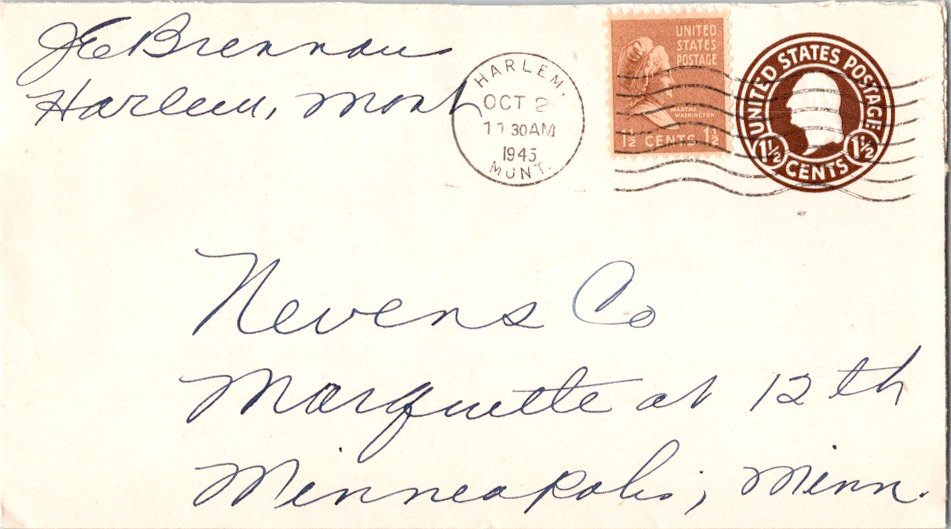 JE Brennan
Harlem, Mont
HARLEM.
OCT 2
11 30 AM
1943
MONT.
UNITED
STATES
POSTAGE
MARTHA
WASHINGTON
1½ CENTS 1½
UNITED STATES POSTAGE
1½ CENTS 1½
Nevens Co
Marquette at 12th
Minneapolis, Minn.